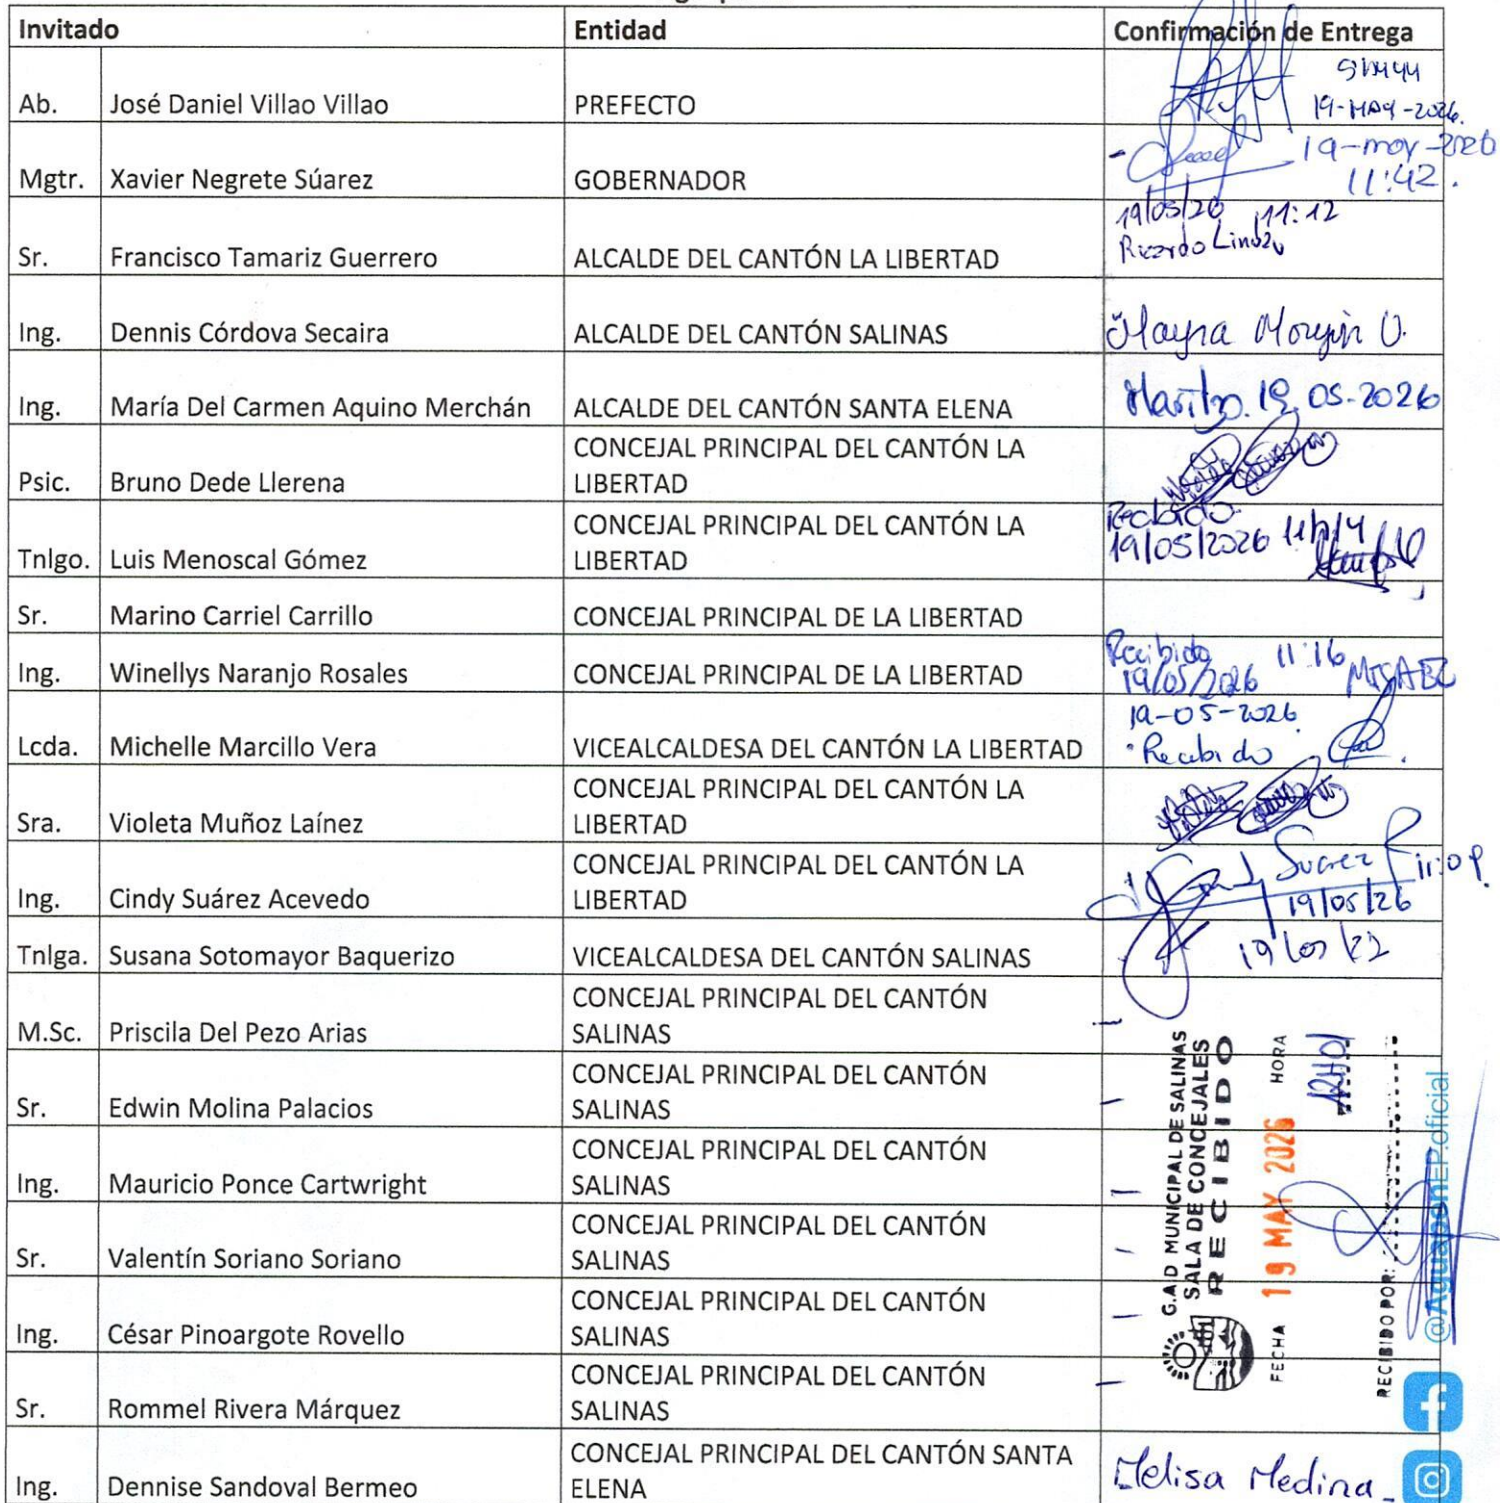 Invitado Entidad Confirmación de Entrega
Ab. José Daniel Villao Villao PREFECTO
19-MAY-2026.
Mgtr. Xavier Negrete Súarez GOBERNADOR
19-may-2026
11:42.
Sr. Francisco Tamariz Guerrero ALCALDE DEL CANTÓN LA LIBERTAD
19/05/26 11:12
Ricardo
Ing. Dennis Córdova Secaira ALCALDE DEL CANTÓN SALINAS
Ing. María Del Carmen Aquino Merchán ALCALDE DEL CANTÓN SANTA ELENA
19.05-2026
Psic. Bruno Dede Llerena CONCEJAL PRINCIPAL DEL CANTÓN LA
LIBERTAD
Tnlgo. Luis Menoscal Gómez CONCEJAL PRINCIPAL DEL CANTÓN LA
LIBERTAD
Recibido
19/05/2026 11h14
Sr. Marino Carriel Carrillo CONCEJAL PRINCIPAL DE LA LIBERTAD
Ing. Winellys Naranjo Rosales CONCEJAL PRINCIPAL DE LA LIBERTAD
Recibido 11:16
19/05/2026
Lcda. Michelle Marcillo Vera VICEALCALDESA DEL CANTÓN LA LIBERTAD
19-05-2026
Recibido
Sra. Violeta Muñoz Laínez CONCEJAL PRINCIPAL DEL CANTÓN LA
LIBERTAD
Ing. Cindy Suárez Acevedo CONCEJAL PRINCIPAL DEL CANTÓN LA
LIBERTAD
Suarez
19/05/26
Tnlga. Susana Sotomayor Baquerizo VICEALCALDESA DEL CANTÓN SALINAS
M.Sc. Priscila Del Pezo Arias CONCEJAL PRINCIPAL DEL CANTÓN
SALINAS
Sr. Edwin Molina Palacios CONCEJAL PRINCIPAL DEL CANTÓN
SALINAS
Ing. Mauricio Ponce Cartwright CONCEJAL PRINCIPAL DEL CANTÓN
SALINAS
Sr. Valentín Soriano Soriano CONCEJAL PRINCIPAL DEL CANTÓN
SALINAS
Ing. César Pinoargote Rovello CONCEJAL PRINCIPAL DEL CANTÓN
SALINAS
Sr. Rommel Rivera Márquez CONCEJAL PRINCIPAL DEL CANTÓN
SALINAS
G.A.D MUNICIPAL DE SALINAS
SALA DE CONCEJALES
RECIBIDO
FECHA 19 MAY 2026 HORA 12H01
RECIBIDO POR:
@AguapenEP.oficial
Ing. Dennise Sandoval Bermeo CONCEJAL PRINCIPAL DEL CANTÓN SANTA
ELENA
Melisa Medina